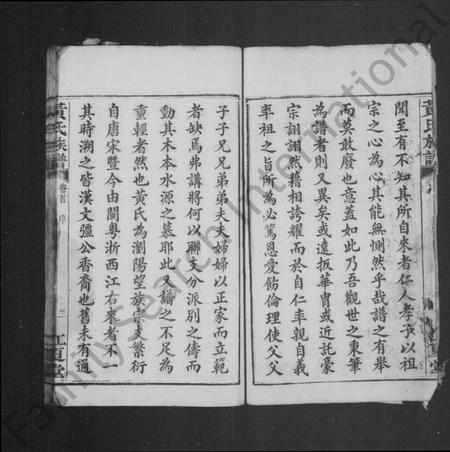 黃氏族譜
聞至有不知其所自來者仁人孝子以祖
宗之心為心其能無惻然乎哉譜之有舉
而莫敢廢也意蓋如此乃吾觀世之秉筆
為譜者則又異矣或遠扳華冑或近託豪
宗詡詡然藉相誇耀而於自仁率親自義
率祖之旨所為必篤恩愛飭倫理使父父
子子兄兄弟弟夫夫婦婦以正家而立範
者缺焉弗講將何以聯支分派別之儔而
動其木本水源之慕耶此又譜之不足為
重輕者然也黃氏為瀏陽望族宗支繁衍
自唐宋暨今由閩粵浙西江右來者不一
其時溯之皆漢文彊公香裔也舊未有通
黃氏族譜
卷首 序
二
江夏堂
FamilySearch International